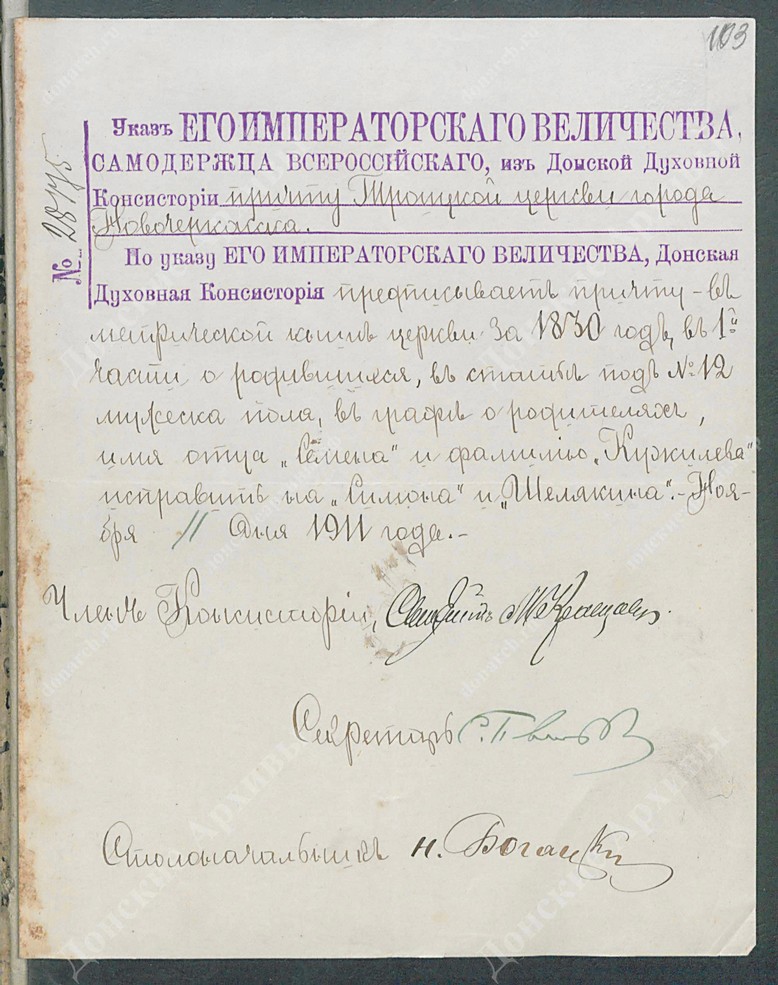 103
№ 28775
Указъ ЕГО ИМПЕРАТОРСКАГО ВЕЛИЧЕСТВА,
САМОДЕРЖЦА ВСЕРОССІЙСКАГО, изъ Донской Духовной
Консисторіи причту Троицкой церкви города
Новочеркасска.
По указу ЕГО ИМПЕРАТОРСКАГО ВЕЛИЧЕСТВА, Донская
Духовная Консисторія предписываетъ причту – въ
метрической книгѣ церкви за 1830 годъ, въ 1й
части о родившихся, въ статьѣ подъ № 12
мужеска пола, въ графѣ о родителяхъ,
имя отца „Семена" и фамилію „Куркилева"
исправить на „Симона" и „Шелякина". – Ноя-
бря 11 дня 1911 года. –
Членъ Консисторіи,
Секретарь
Столоначальникъ Н.